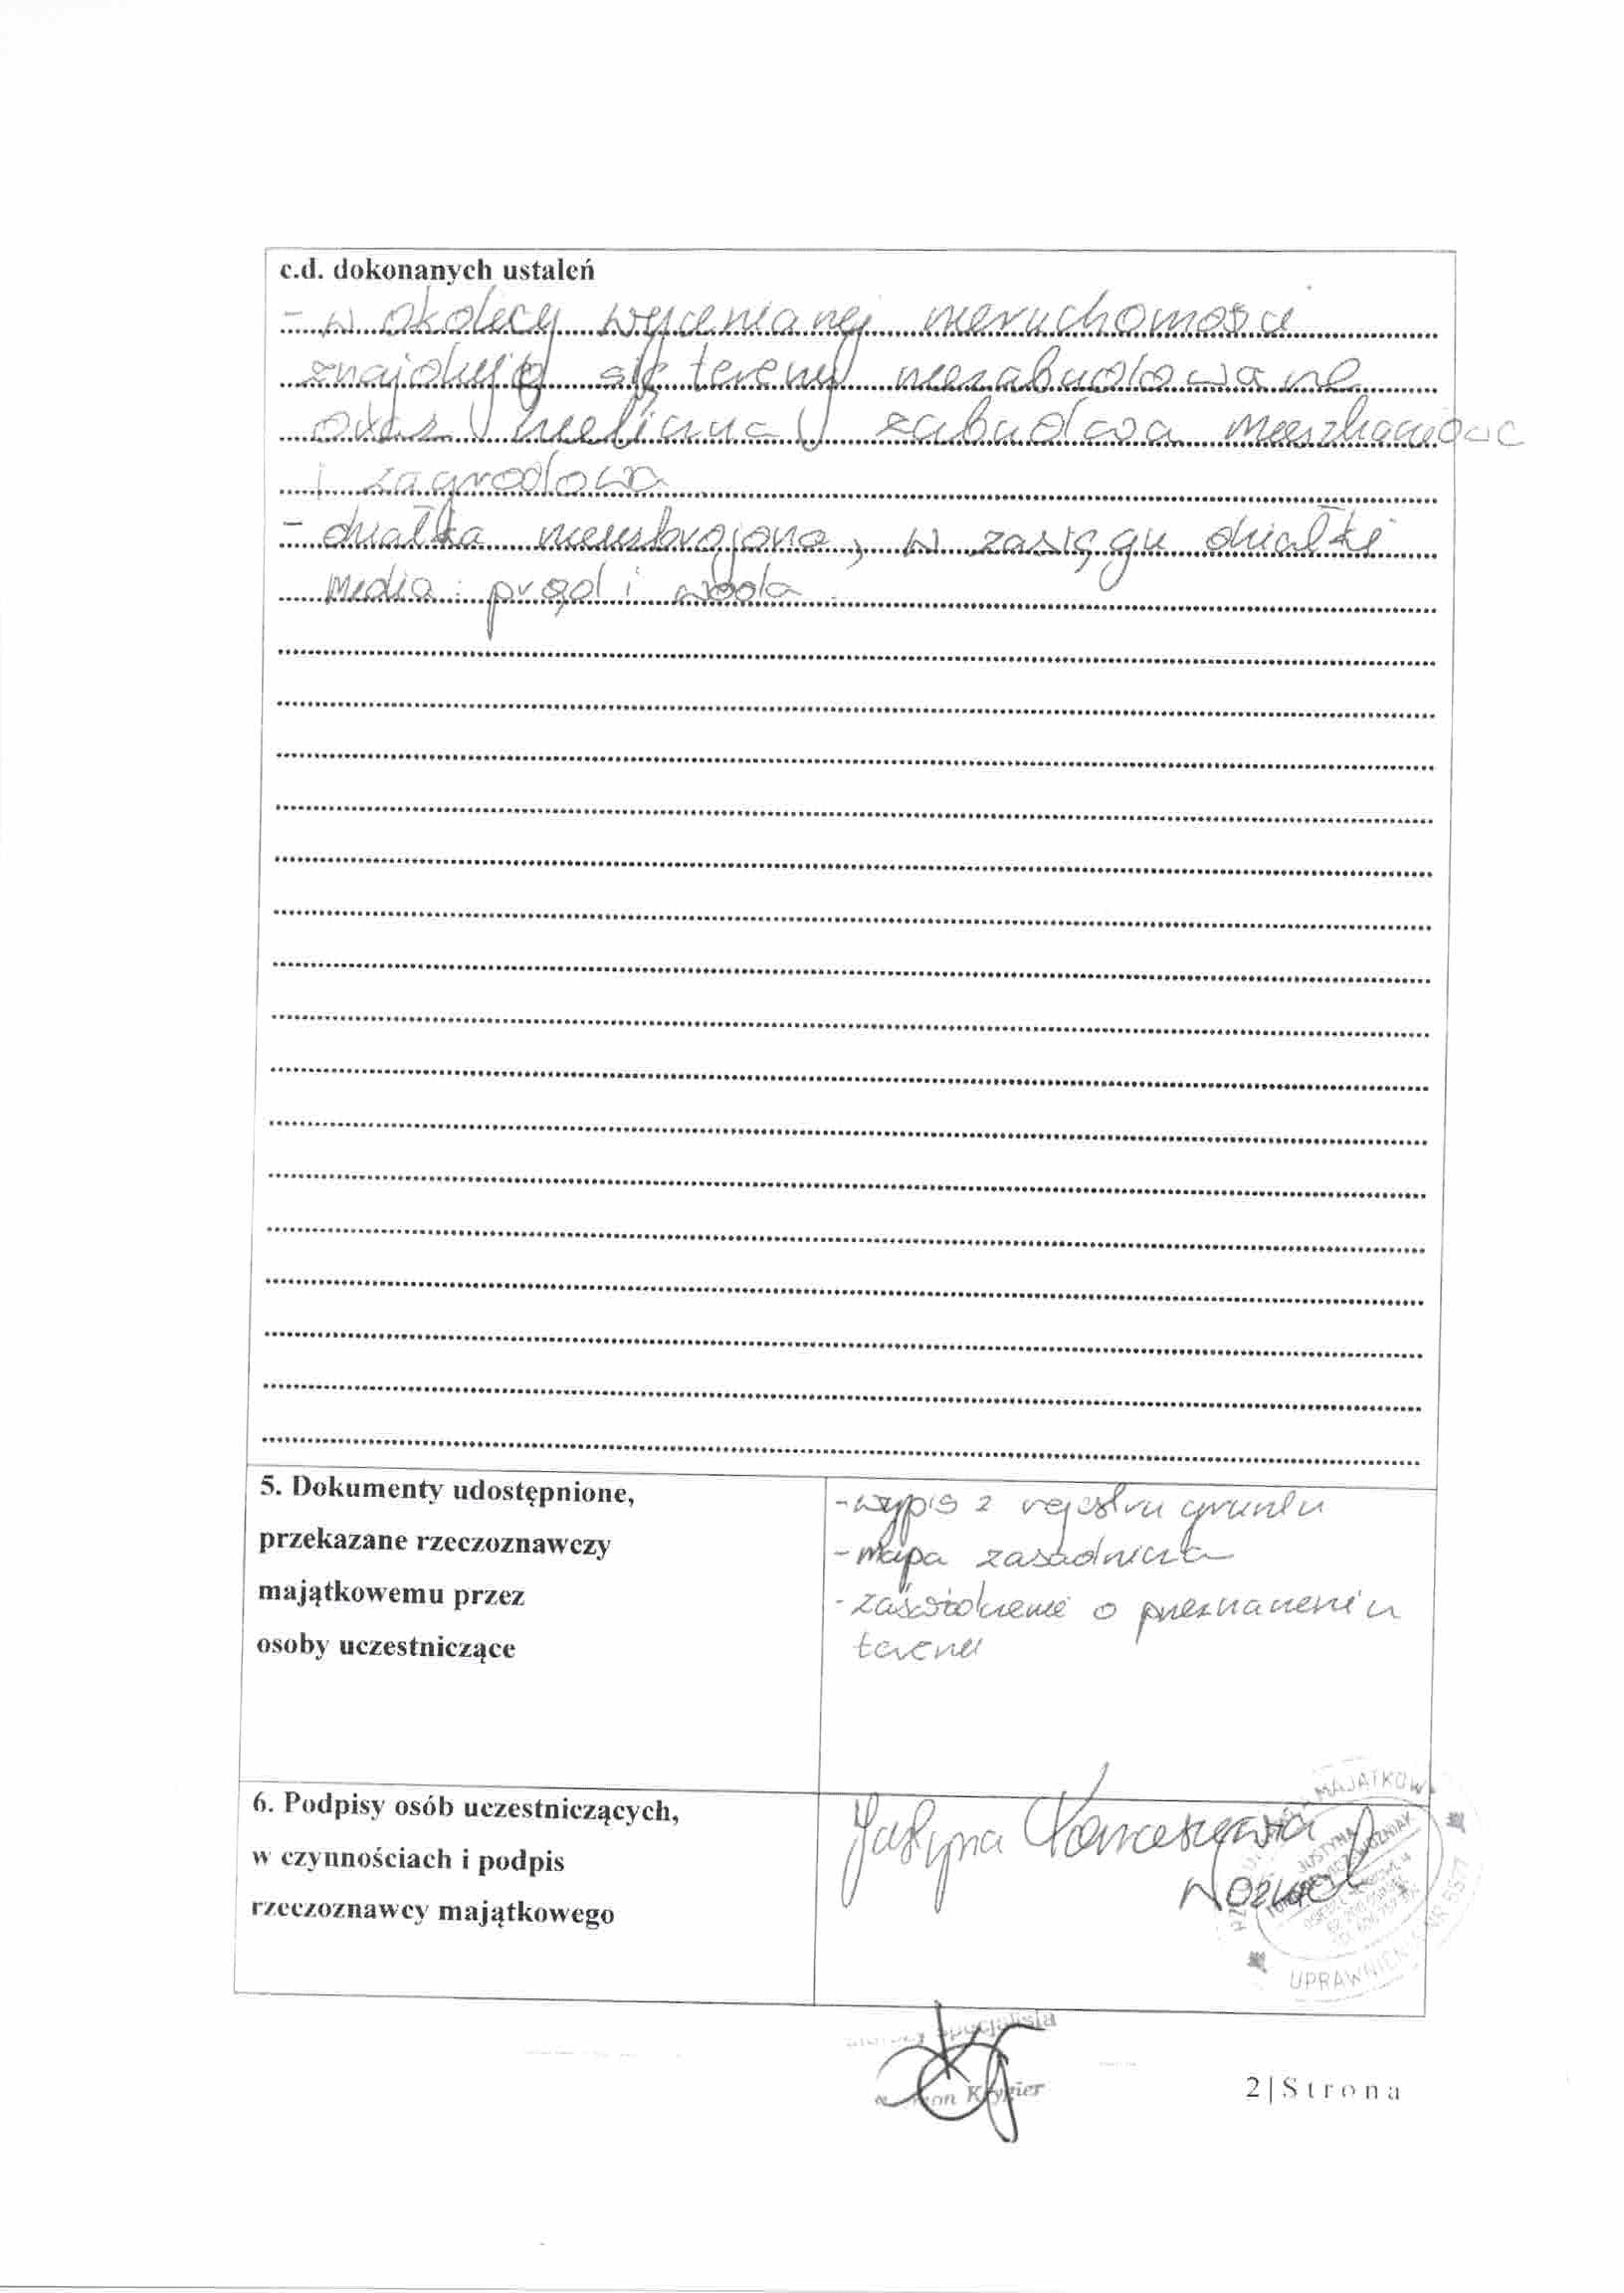 c.d. dokonanych ustaleń
- w okolicy wycenianej nieruchomości
znajdują się tereny niezabudowane
oraz nieliczna zabudowa mieszkaniowa
i zagrodowa
- działka nieuzbrojona, w zasięgu działki
media: prąd i woda.
5. Dokumenty udostępnione,
przekazane rzeczoznawczy
majątkowemu przez
osoby uczestniczące
- wypis z rejestru gruntu
- mapa zasadnicza
- zaświadczenie o przeznaczeniu
terenu
6. Podpisy osób uczestniczących,
w czynnościach i podpis
rzeczoznawcy majątkowego
Justyna
MAJĄTKOW
JUSTYNA
UPRAWNIEN NR 5577
Specjalista
Krygier
2 | Strona